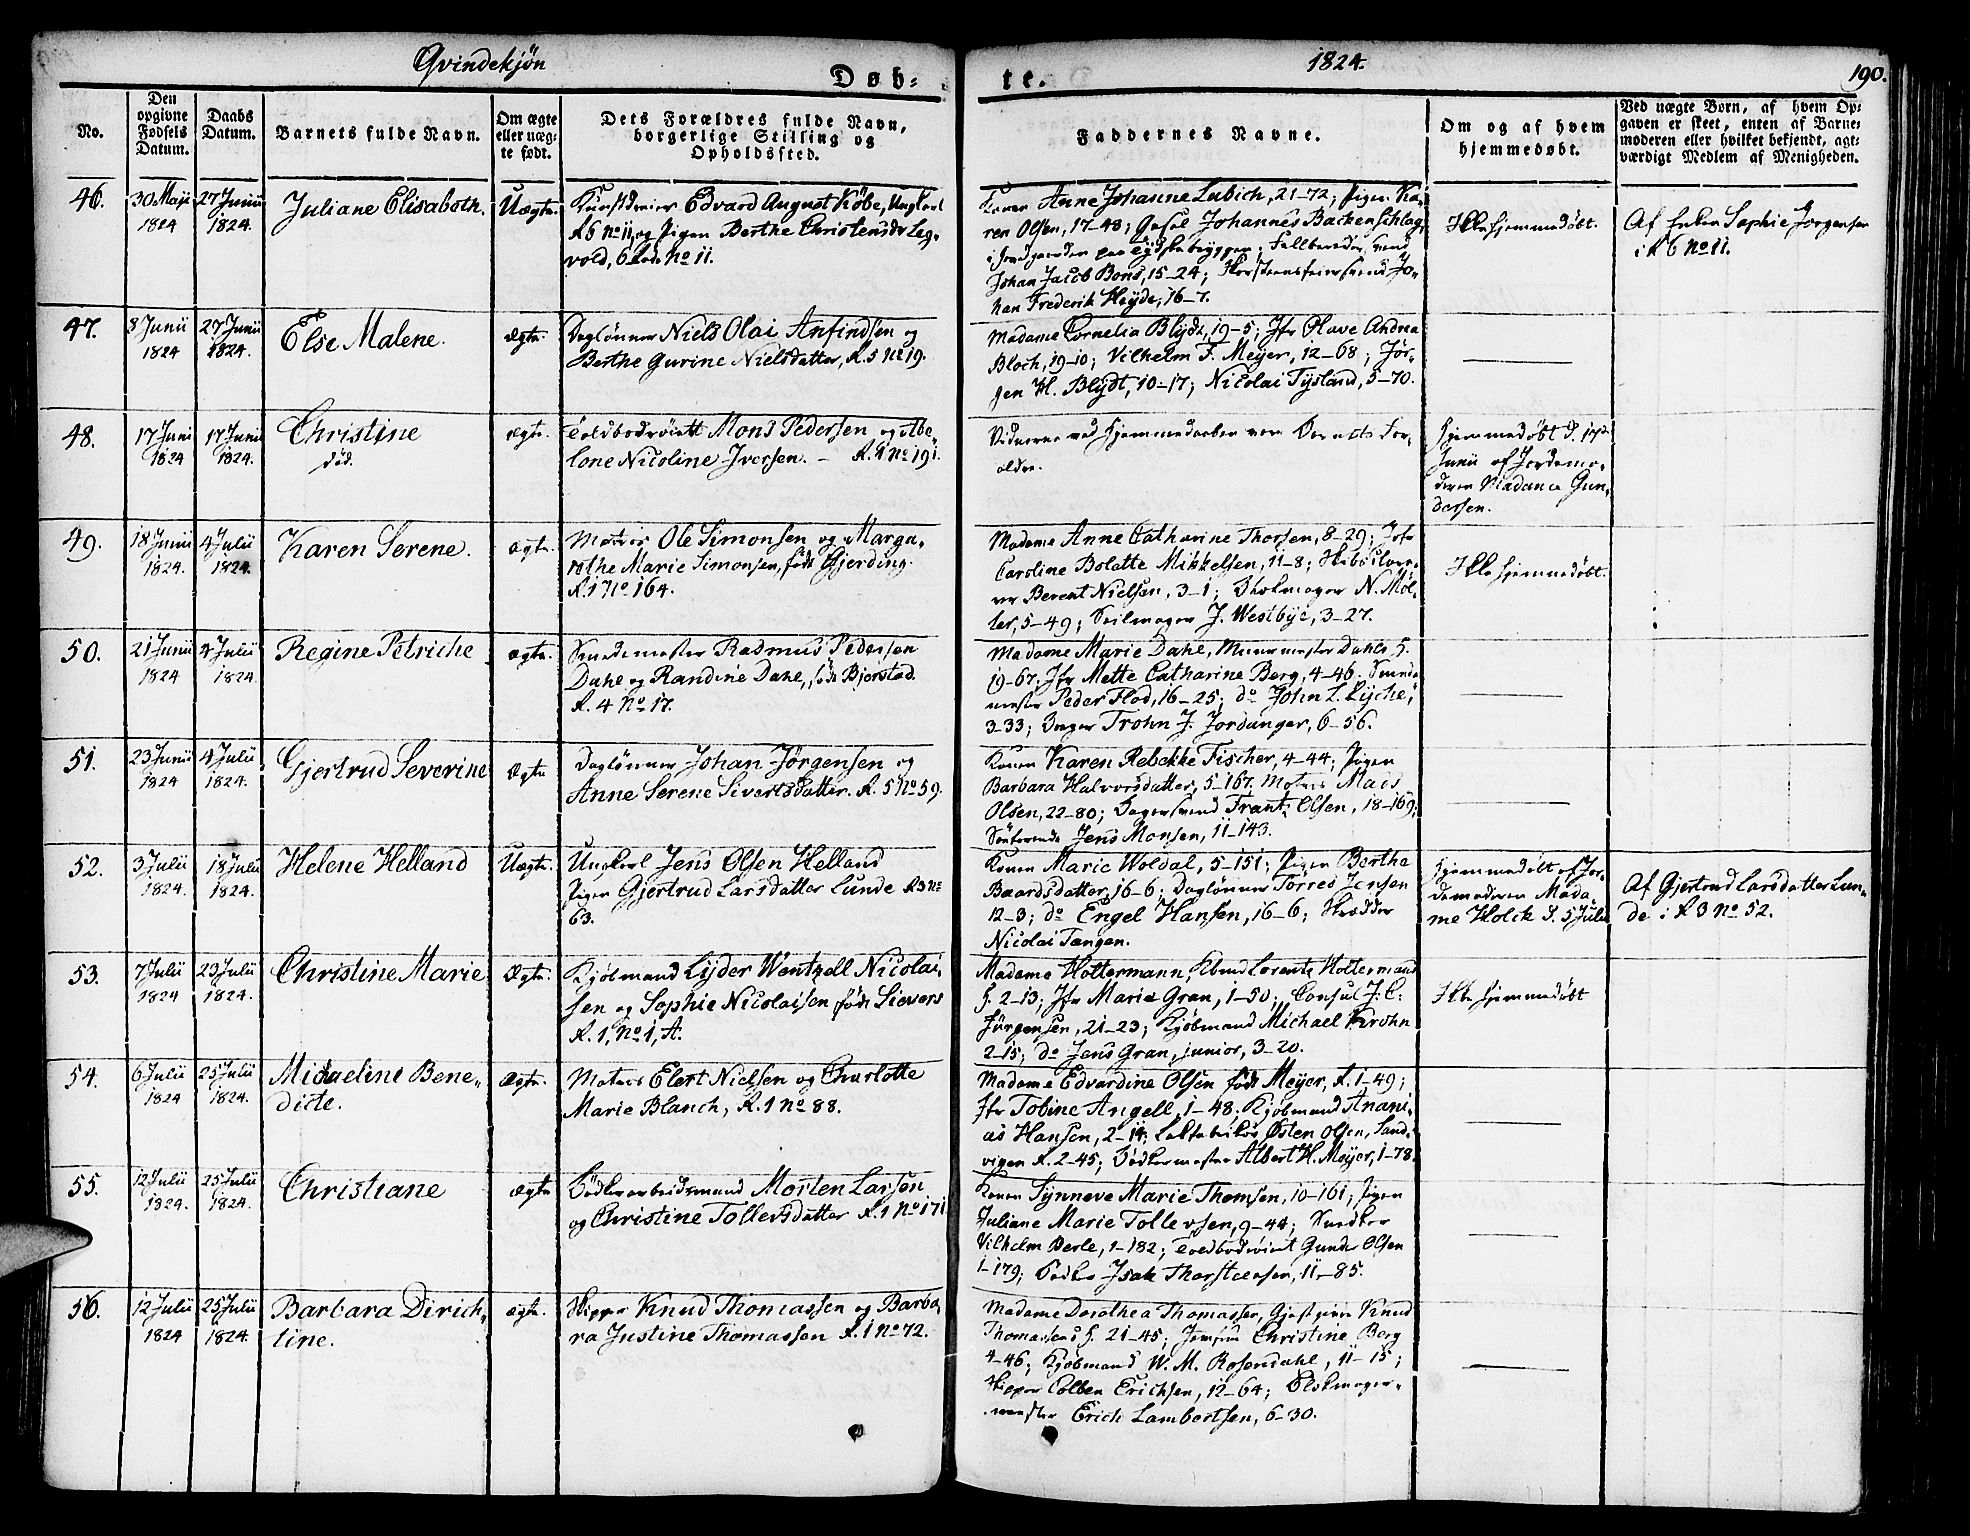 Qvindekjön
Døb-
te.
1824.
190.
No.
Den
opgivne
Fødsels
Datum.
Daabs
Datum.
Barnets fulde Navn.
Om ægte
eller uæg-
te født.
Dets Forældres fulde Navn,
borgerlige Stilling og
Opholdssted.
Faddernes Navne.
Om og af hvem
hjemmedøbt.
Ved uægte Børn, af hvem Op-
gaven er skeet, enten af Barne-
moderen eller hvilket bekjendt, agt-
værdigt Medlem af Menigheden.
46.
30 Maji
1824
27 Junii
1824.
Juliane Elisabeth.
Uægte.
Edvard August Köbe, Ungkarl
R6 No 11, og Pigen Berthe Christensdr Leg-
vold, 6 Rode No 11.
Konen Anne Johanne Lubich, 21-72; Pigen Ka-
ren Olsen, 17-48; Gesel Johannes Backenschlag
Johan Jacob Bons, 15-24; Skorsteensfeiersvend Jo-
han Frederik Heyde, 16-7.
Ikke hjemmedøbt.
Af Enken Sophie Jörgensen
i R 6 No 11.
47.
8 Junii
1824
27 Junii
1824.
Else Malene.
Ægte.
Daglönner Niels Olai Anfindsen og
Berthe Gurine Nielsdatter, R. 5 No 19.
Madame Cornelia Blydt, 19-5; Jfr Olave Andrea
Bloch, 19-10; Vilhelm F. Meyer, 12-68; Jör-
gen H. Blydt, 10-17; Nicolai Tysland, 5-70.
48.
17 Juni
1824
17 Junii
1824.
Christine
död.
ægte.
Toldbodröiert Mons Pedersen og Abe-
lone Nicoline Iversen. – R. 1 No 191.
Vidnerne ved Hjemmedaaben var Barnets For-
ældre.
Hjemmedöbt d. 17de
Junii af Jordemo-
deren Madame Gun-
dersen.
49.
18 Junii
1824.
4 Julii
1824.
Karen Serene.
ægte.
Matros Ole Simonsen og Marga-
rethe Marie Simonsen, födt Gjerding.
R. 1 No 164.
Madame Anne Catharine Thorsen, 8-29; Jfr
Caroline Bolette Mikkelsen, 11-8;
Berent Nielsen, 3-1; Blokmager N. Möl-
ler, 5-49; Seilmager J. Westbye, 3-27.
Ikke hjemmedøbt.
50.
21 Junii
1824
4 Julii
1824.
Regine Petriche
ægte.
Smedemester Rasmus Pedersen
Dahl og Randine Dahl, födt Bjerstad.
R. 4 No 17.
Madame Marie Dahl, Murmester Dahls H.
19-67. Jfr Mette Catharine Berg, 4-46. Smede-
mester Peder Flod, 16-25; do John L. Lyche,
3-33; Trohn J. Jordanger, 6-56.
51.
23 Junii
1824
4 Julii
1824.
Gjertrud Severine
Ægte
Daglönner Johan Jörgensen og
Anne Serene Sivertsdatter. R. 5 No 59.
Konen Karen Rebekke Fischer, 4-44; Pigen
Barbara Halvorsdatter, 5-167. Matros Mads
Olsen, 22-80; Bagersvend Frantz Olsen, 18-169;
Jens Monsen, 11-143.
52.
3 Julii
1824.
18 Julii
1824.
Helene Helland
Uægte.
Ungkarl Jens Olsen Helland
Pigen Gjertrud Larsdatter Lunde R 3 No
63.
Konen Marie Woldal, 5-151; Pigen Berthe
Baardsdatter, 16-6; Daglönner Torres Jensen
12-3; do Engel Hansen, 16-6; Skrædder
Nicolai Tangen.
Hjemmedöbt af Jor-
demoderen Mada-
me Holck d. 5 Julii
Af Gjertrud Larsdatter Lun-
de i R 3 No 52.
53.
7 Julii
1824
23 Julii
1824.
Christine Marie
Ægte.
Kjöbmand Lyder Wentzell Nicolai-
sen og Sophie Nicolaisen födt Sievers
R. 1, No 1, A.
Madame Holtermann, Kbmd Lorentz Holtermans
H. 2-13; Jfr Marie Gran, 1-50; Consul J. C.
Jürgensen, 21-23; Kjöbmand Michael Krohn
2-15; do Jens Gran, junior, 3-20.
Ikke hjemmedöbt
54.
6 Julii
1824
25 Julii
1824.
Micaeline Bene-
dicte.
Ægte.
Matros Elert Nielsen og Charlotte
Marie Blanch, R. 1 No 88.
Madame Edvardine Olsen födt Meyer, R. 1-49;
Jfr Tobine Angell, 1-48. Kjöbmand Anani-
as Hansen, 2-14; Østen Olsen, Sand-
vigen R. 2-45; Bödkermester Albert H. Meyer, 1-78.
55.
12 Julii
1824.
25 Julii
1824.
Christiane
Ægte
Bödkerarbeidsmand Morten Larsen
og Christine Tollevsdatter R. 1 No 171
Konen Synneve Marie Thomsen, 10-161; Pigen
Juliane Marie Tollevsen, 9-44; Snedker
Vilhelm Berle, 1-182; Toldbodröiert Gunder Olsen
1-179; Bödker Isak Thorsteensen, 11-85.
56.
12 Julii
1824
25 Julii
1824.
Barbara Dirich-
tine.
ægte.
Skipper Knud Thomassen og Barba-
ra Justine Thomassen R. 1 No 72.
Madame Dorothea Thomassen, Gjestgiver Knud
Thomassens H. 21-45; Jomfru Christine Berg
4-46; Kjöbmand W. M. Rosendahl, 11-15;
Skipper Colben Erichsen, 12-64; Blokmager-
mester Erich Lambertsen, 6-30.